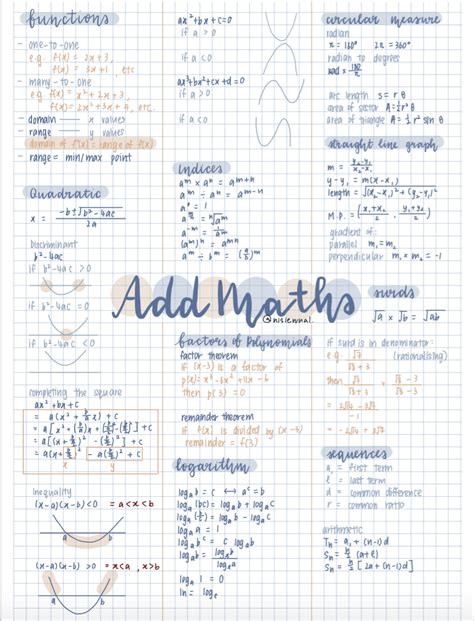 functions
- one-to-one
e.g. f(x) = 2x + 3,
f(x) = 3x + 1, etc
- many-to-one
e.g. f(x) = x² + 2x + 3,
f(x) = 2x² + 3x + 4, etc.
- domain — x values
- range — y values
domain of f(x) = range of f(x)
- range = min/max point
Quadratic
x = -b ± √b² - 4ac / 2a
Discriminant
b² - 4ac
if b² - 4ac > 0
if b² - 4ac = 0
if b² - 4ac < 0
completing the square
ax² + bx + c
x
y
Inequality
(x-a)(x-b) < 0 = a < x < b
a
b
(x-a)(x-b) > 0 = x < a , x > b
a
b
ax² + bx + c = 0
if a > 0
if a < 0
ax³ + bx² + cx + d = 0
if a > 0
if a < 0
Indices
aᵐ × aⁿ = aᵐ⁺ⁿ
aᵐ ÷ aⁿ = aᵐ⁻ⁿ
(aᵐ)ⁿ = aᵐⁿ
Add Maths
factors of Polynomials
factor theorem
if (x-3) is a factor of
p(x) = x³ - 6x² + 11x - 6
then p(3) = 0
remainder theorem
if f(x) is divided by (x-3)
remainder = f(3)
logarithm
logₐ b = c ⟷ aᶜ = b
logₐ (bc) = logₐ b + logₐ c
logₐ (b/c) = logₐ b - logₐ c
logₐ a = 1
logₐ bᶜ = c logₐ b
logₐ 1 = 0
ln = logₑ
circular measure
radian
π = 180° 2π = 360°
radian to degrees
rad × 180/π
arc length s = rθ
area of sector A = ½r²θ
area of triangle A = ½r² sin θ
straight line graph
m = y₂-y₁/x₂-x₁
y - y₁ = m(x - x₁)
length = √(x₂-x₁)² + (y₂-y₁)²
M.P. = (x₁+x₂/2 , y₁+y₂/2)
gradient of:
parallel m₁ = m₂
perpendicular m₁ × m₂ = -1
surds
√a × √b = √ab
if surd is in denominator:
e.g. (rationalising)
then
sequences
a₁ = first term
l = last term
d = common difference
r = common ratio
arithmetic
Tₙ = a₁ + (n-1)d
Sₙ = n/2 (a + l)
Sₙ = n/2 [2a + (n-1)d]